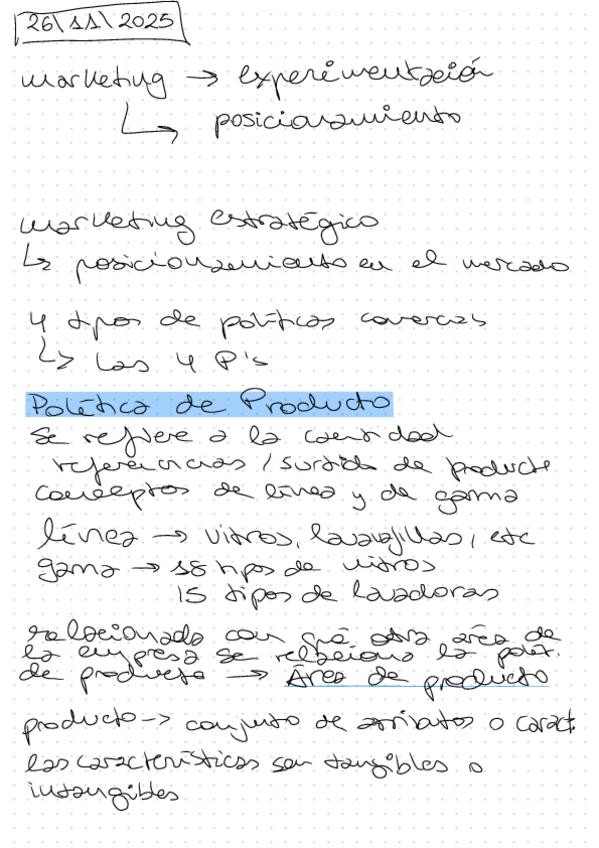 26\11\2025
marketing → experimentación
↳ posicionamiento
marketing estratégico
↳ posicionamiento en el mercado
4 tipos de políticas
↳ Las 4 P's
Política de Producto
Se refiere a la cantidad
referencias / surtido de producte
conceptos de línea y de gama
línea → vitros, lavavajillas, etc
gama → 18 tipos de vitros
15 tipos de lavadoras
relacionado con qué otra área de
la empresa se relaciona la polít.
de producto → Área de producto
producto → conjunto de atributos o caract.
las características son tangibles o
intangibles